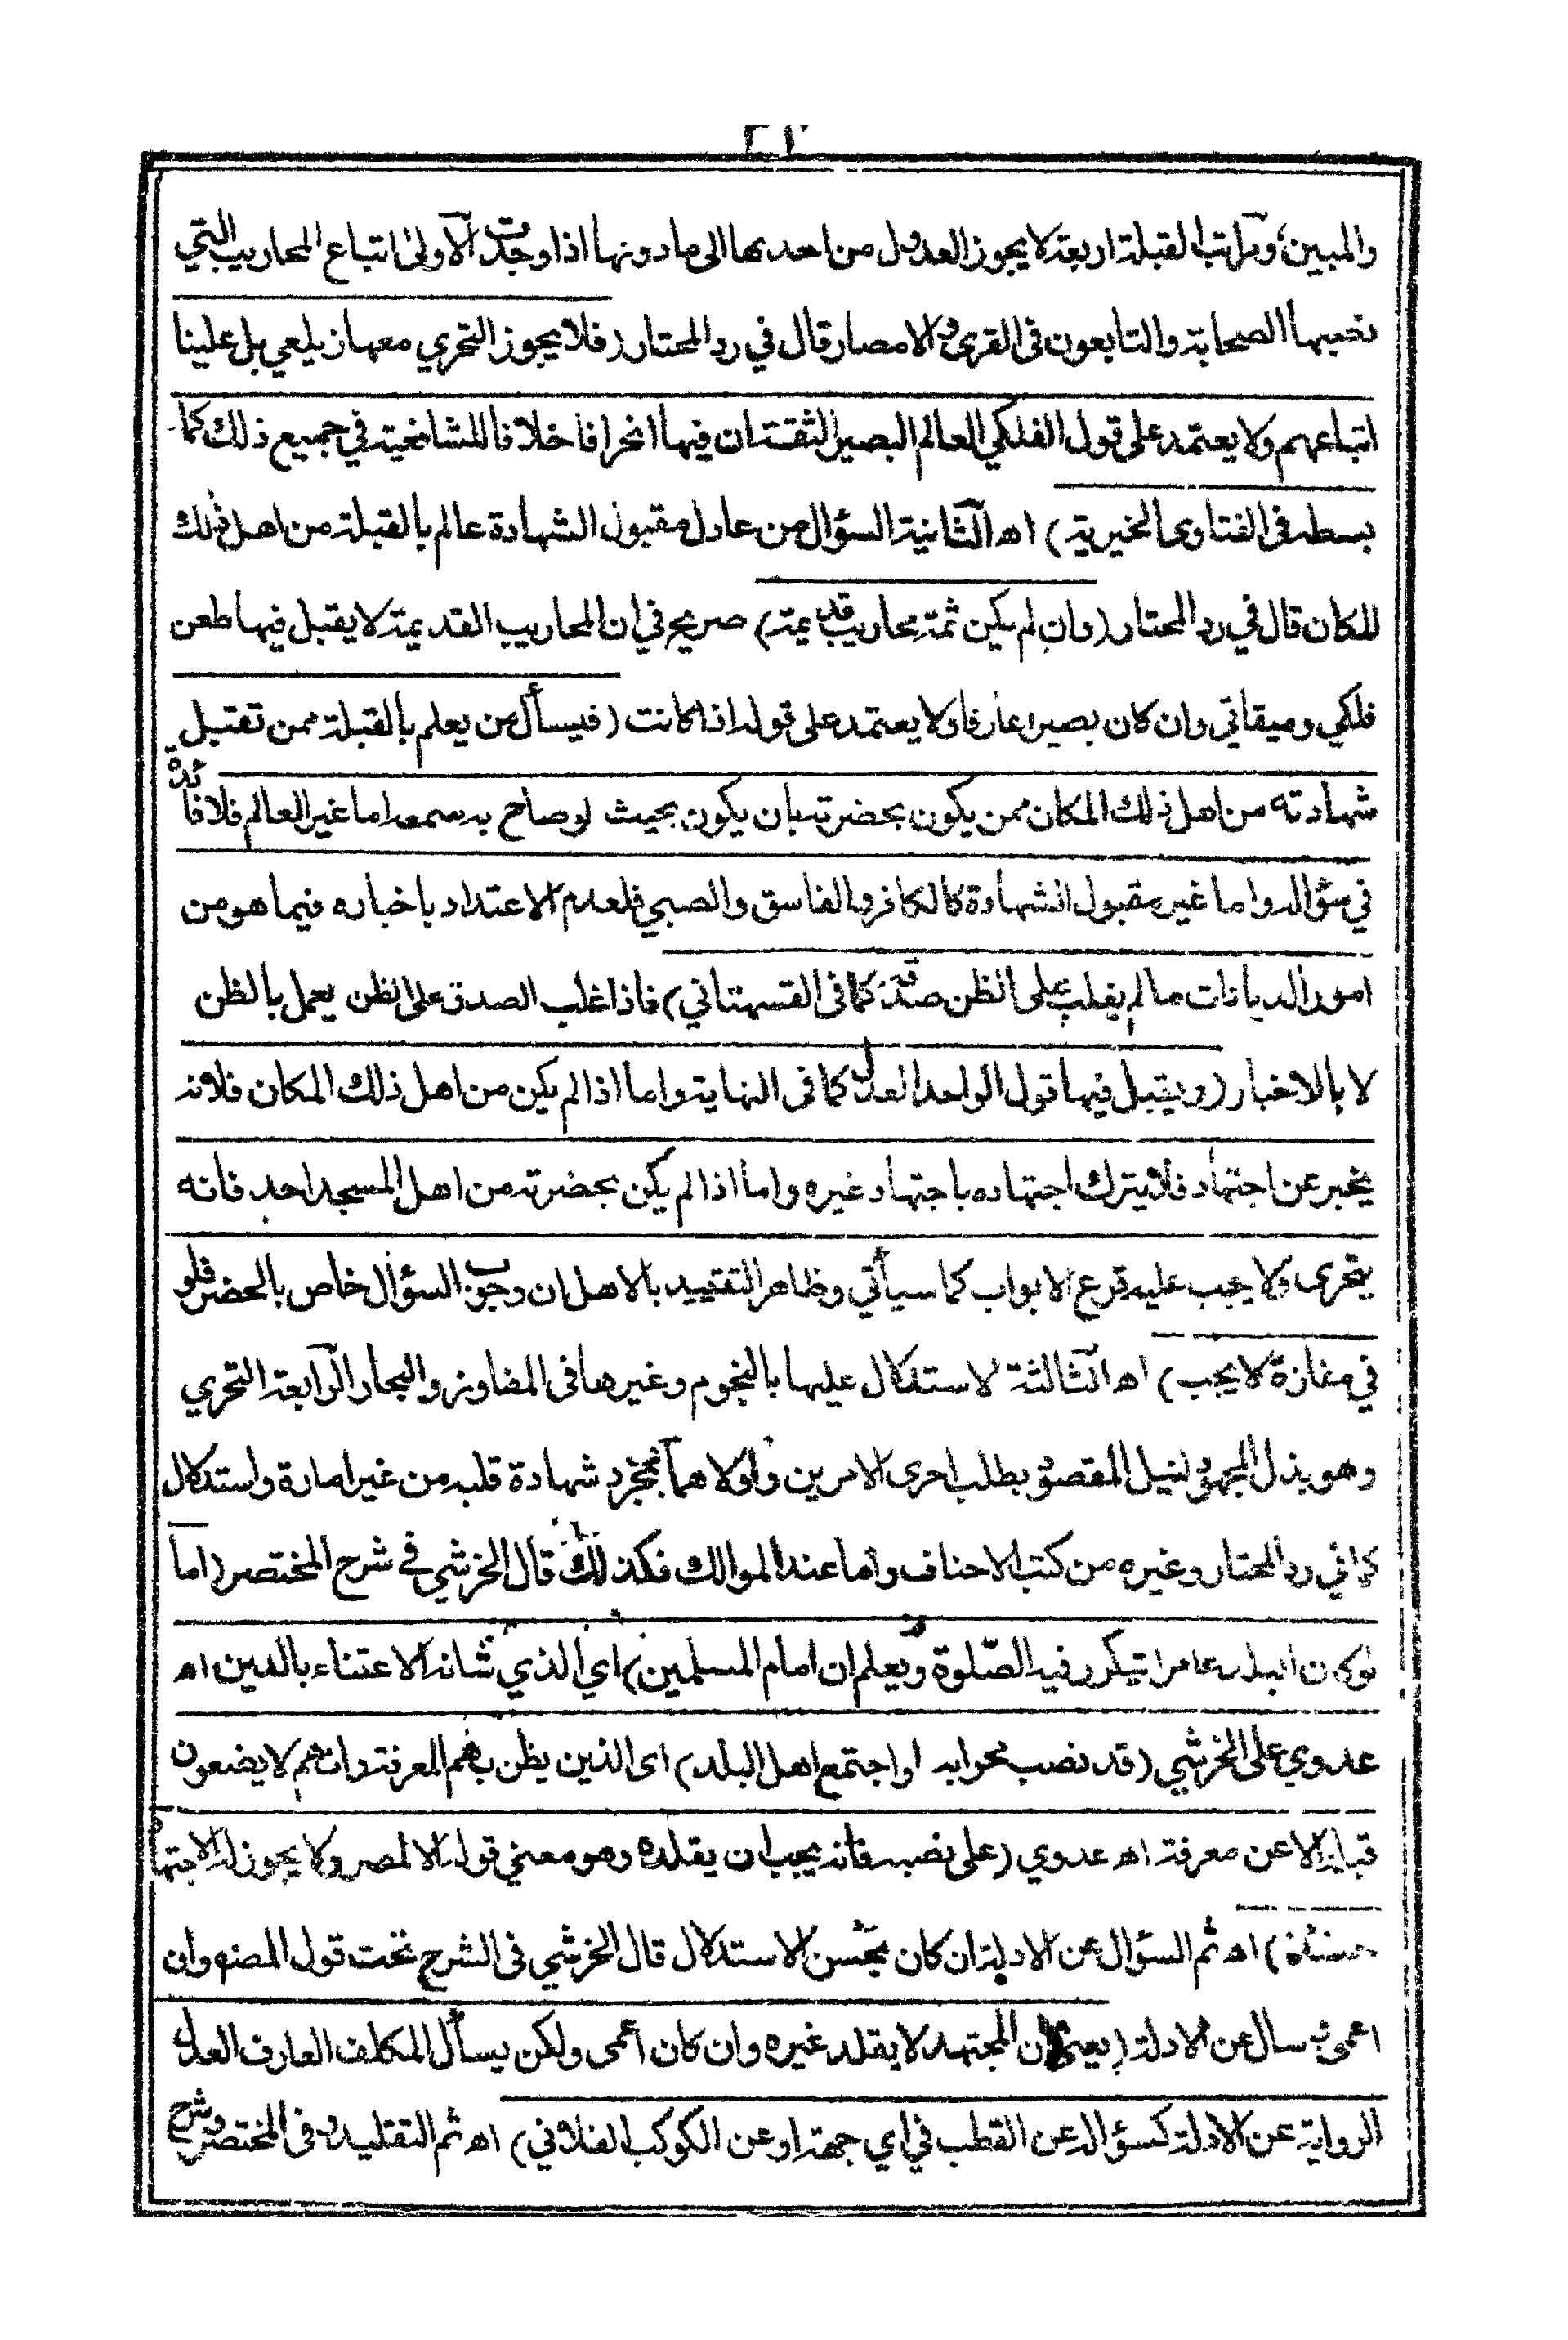 والمبين، ومراتب القبلة اربعة لا يجوز العدول من احدىها الى ما دونها اذا وجدت الاولى اتباع المحاريب التي
نصبها الصحابة والتابعون فى القرى والامصار قال في رد المحتار (فلا يجوز التحري معها زيلعي بل علينا
اتباعهم ولا يعتمد على قول الفلكي العالم البصير الثقة ان فيها انحرافا خلافا للشافعية في جميع ذلك كما
بسطه فى الفتاوى الخيرية) اھ الثانية السؤال من عادل مقبول الشهادة عالم بالقبلة من اهل ذلك
المكان قال في رد المحتار (وان لم يكن ثمة محاريب قديمة) صريح في ان المحاريب القديمة لا يقبل فيها طعن
فلكي وميقاتي وان كان بصيرا عارفا ولا يعتمد على قوله اذا كانت (فيسأل من يعلم بالقبلة ممن تقبل
شهادته من اهل ذلك المكان ممن يكون بحضرته بان يكون بحيث لو صاح به سمعه اما غير العالم فلا فائدة
في سؤاله واما غير مقبول الشهادة كالكافر والفاسق والصبي فلعدم الاعتداد باخباره فيما هو من
امور الديانات ما لم يغلب على الظن صدقه كما فى القهستاني) فاذا غلب الصدق على الظن يعمل بالظن
لا بالاخبار (ويقبل فيها قول الواحد العدل كما فى النهاية واما اذا لم يكن من اهل ذلك المكان فلانه
يخبر عن اجتهاد فلا يترك اجتهاده باجتهاد غيره واما اذا لم يكن بحضرته من اهل المسجد احد فانه
يتحرى ولا يجب عليه قرع الابواب كما سيأتي وظاهر التقييد بالاهل ان وجوب السؤال خاص بالحضر فلو
في مفازة لا يجب) اھ الثالثة لاستدلال عليها بالنجوم وغيرها فى المفاوز والبحار الرابعة التحري
وهو بذل المجهود لنيل المقصود بطلب احرى الامرين واولاهما بمجرد شهادة قلبه من غير امارة واستدلال
كما في رد المحتار وغيره من كتب الاحناف واما عند الموالك فكذلك قال الخرشي في شرح المختصر (اما
لو كان البلد عامرا تتكرر فيه الصلوة ويعلم ان امام المسلمين) اي الذي شانه الاعتناء بالدين اھ
عدوي على الخرشي (قد نصب محرابه او اجتمع اهل البلد) اى الذين يظن بهم المعرفة وانهم لا يضعون
قبلة الا عن معرفة اھ عدوي (على نصبه فانه يجب ان يقلده وهو معنى قوله الا لمصر ولا يجوز له الاجتهاد
) اھ ثم السؤال عن الادلة ان كان يحسن الاستدلال قال الخرشي فى الشرح تحت قول المصنف وان
اعمى وسال عن الادلة (يعنى ان المجتهد لا يقلد غيره وان كان اعمى ولكن يسأل المكلف العارف العدل
الرواية عن الادلة كسؤاله عن القطب في اي جهة او عن الكوكب الفلاني) اھ ثم التقليد وفى المختصر وشرح